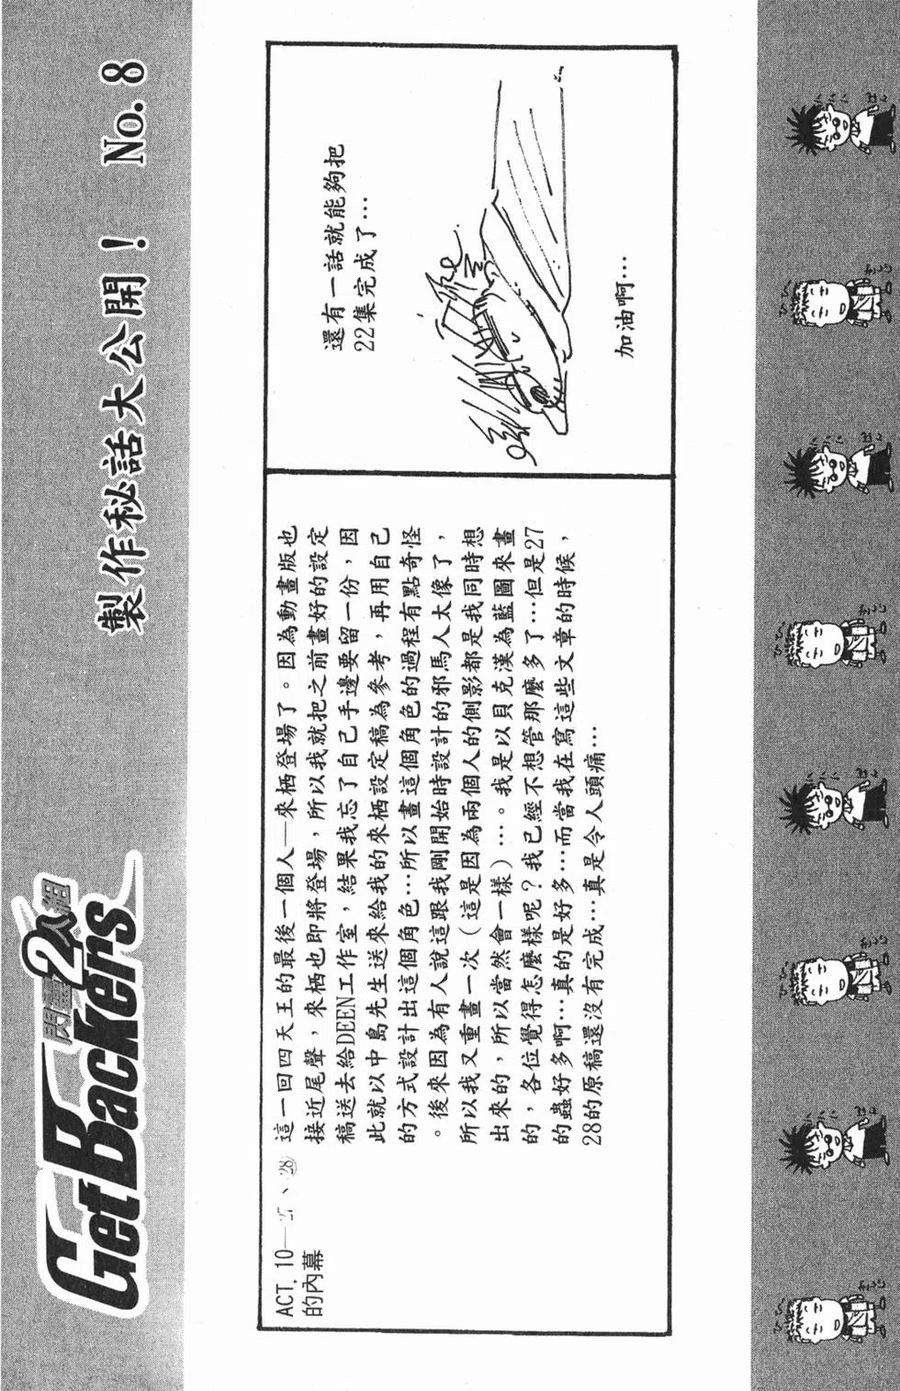 閃靈2人組
GetBackers
製作秘話大公開! No. 8
ACT. 10—27、28
的內幕
這一回四天王的最後一個人—來栖登場了。因為動畫版也
接近尾聲，來栖也即將登場，所以我就把之前畫好的設定
稿送去給DEEN工作室，結果我忘了自己手邊要留一份，因
此就以中島先生送來給我的來栖設定稿為參考，再用自己
的方式設計出這個角色…所以畫這個角色的過程有點奇怪
。後來因為有人說這跟我剛開始時設計的邪馬人太像了，
所以我又重畫一次（這是因為兩個人的側影都是我同時想
出來的，所以當然會一樣）…。我是以貝克漢為藍圖來畫
的，各位覺得怎麼樣呢？我已經不想管那麼多了…但是27
的蟲好多啊…真的是好多…而當我在寫這些文章的時候，
28的原稿還沒有完成…真是令人頭痛…
還有一話就能夠把
22集完成了…
加油啊…